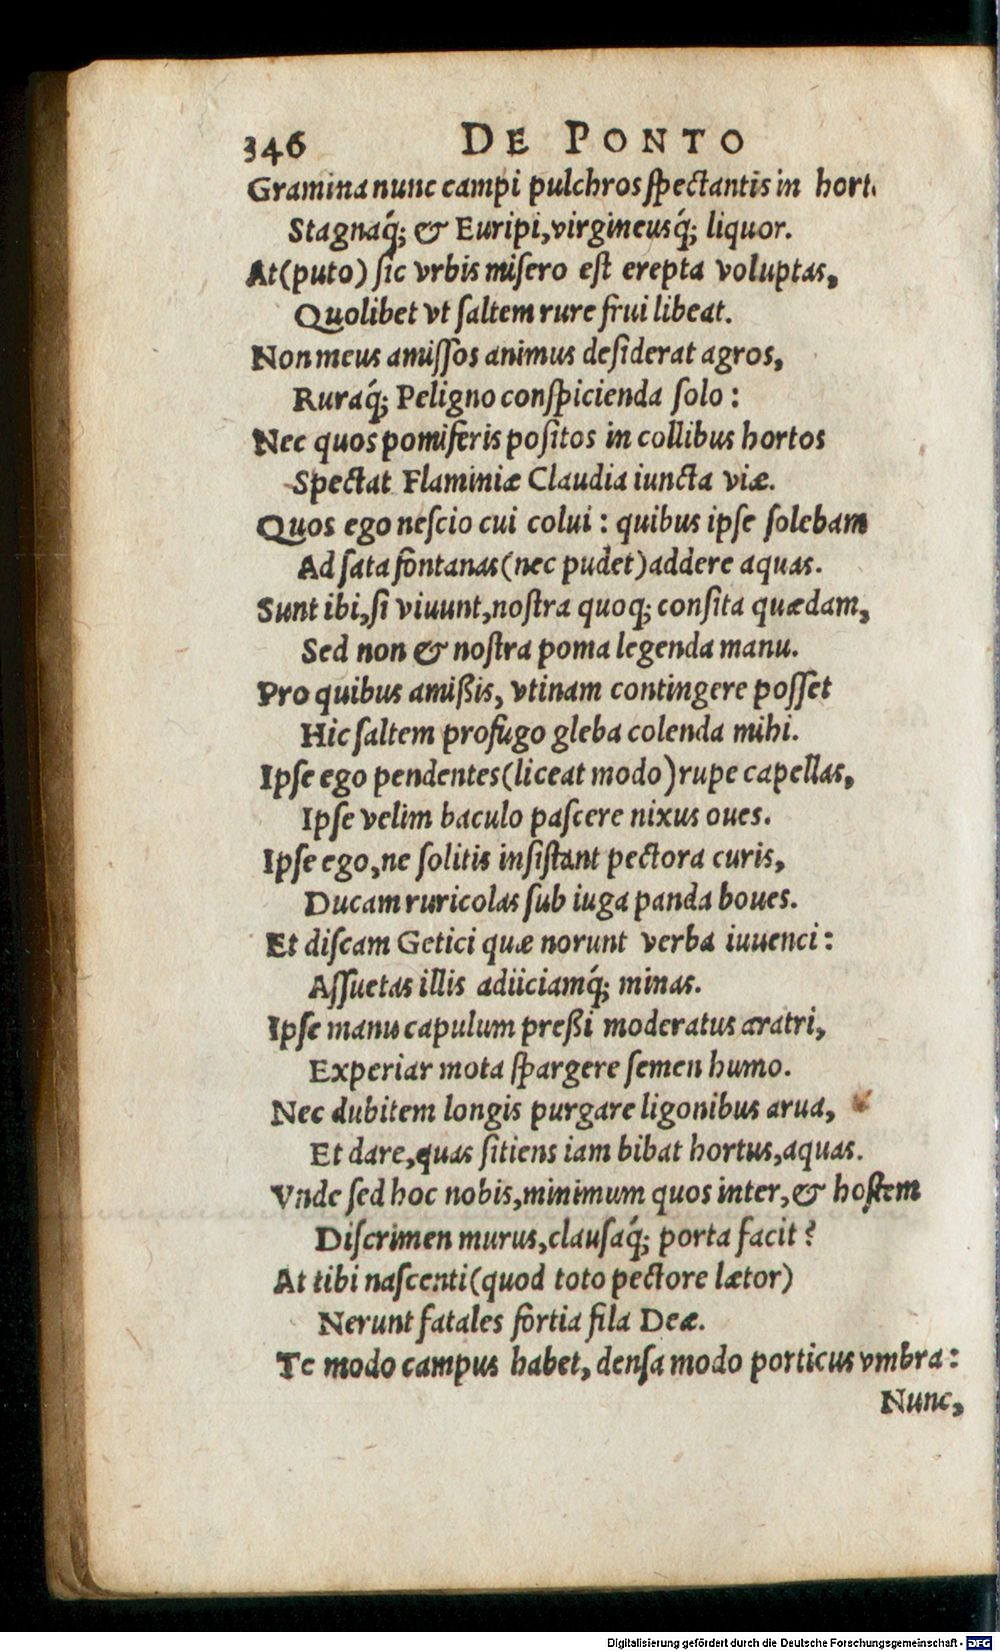 346 DE PONTO
Gramina nunc campi pulchros ſpectantis in hort
Stagnaq́; & Euripi, virgineusq́; liquor.
At (puto) ſic vrbis miſero est erepta voluptas,
Quolibet vt ſaltem rure frui libeat.
Non meus amiſſos animus deſiderat agros,
Ruraq́; Peligno conſpicienda ſolo :
Nec quos pomiferis poſitos in collibus hortos
Spectat Flaminiæ Claudia iuncta viæ.
Quos ego neſcio cui colui : quibus ipſe ſolebam
Ad ſata fontanas (nec pudet) addere aquas.
Sunt ibi, ſi viuunt, noſtra quoq; conſita quædam,
Sed non & noſtra poma legenda manu.
Pro quibus amißis, vtinam contingere poſſet
Hic ſaltem profugo gleba colenda mihi.
Ipſe ego pendentes (liceat modo) rupe capellas,
Ipſe velim baculo paſcere nixus oues.
Ipſe ego, ne ſolitis inſiſtant pectora curis,
Ducam ruricolas ſub iuga panda boues.
Et diſcam Getici quæ norunt verba iuuenci :
Aſſuetas illis adiiciamq́; minas.
Ipſe manu capulum preßi moderatus aratri,
Experiar mota ſpargere ſemen humo.
Nec dubitem longis purgare ligonibus arua,
Et dare, quas ſitiens iam bibat hortus, aquas.
Vnde ſed hoc nobis, minimum quos inter, & hoſtem
Diſcrimen murus, clauſaq́; porta facit?
At tibi naſcenti (quod toto pectore lætor)
Nerunt fatales fortia fila Deæ.
Te modo campus habet, denſa modo porticus vmbra :
Nunc,
Digitalisierung gefördert durch die Deutsche Forschungsgemeinschaft - DFG